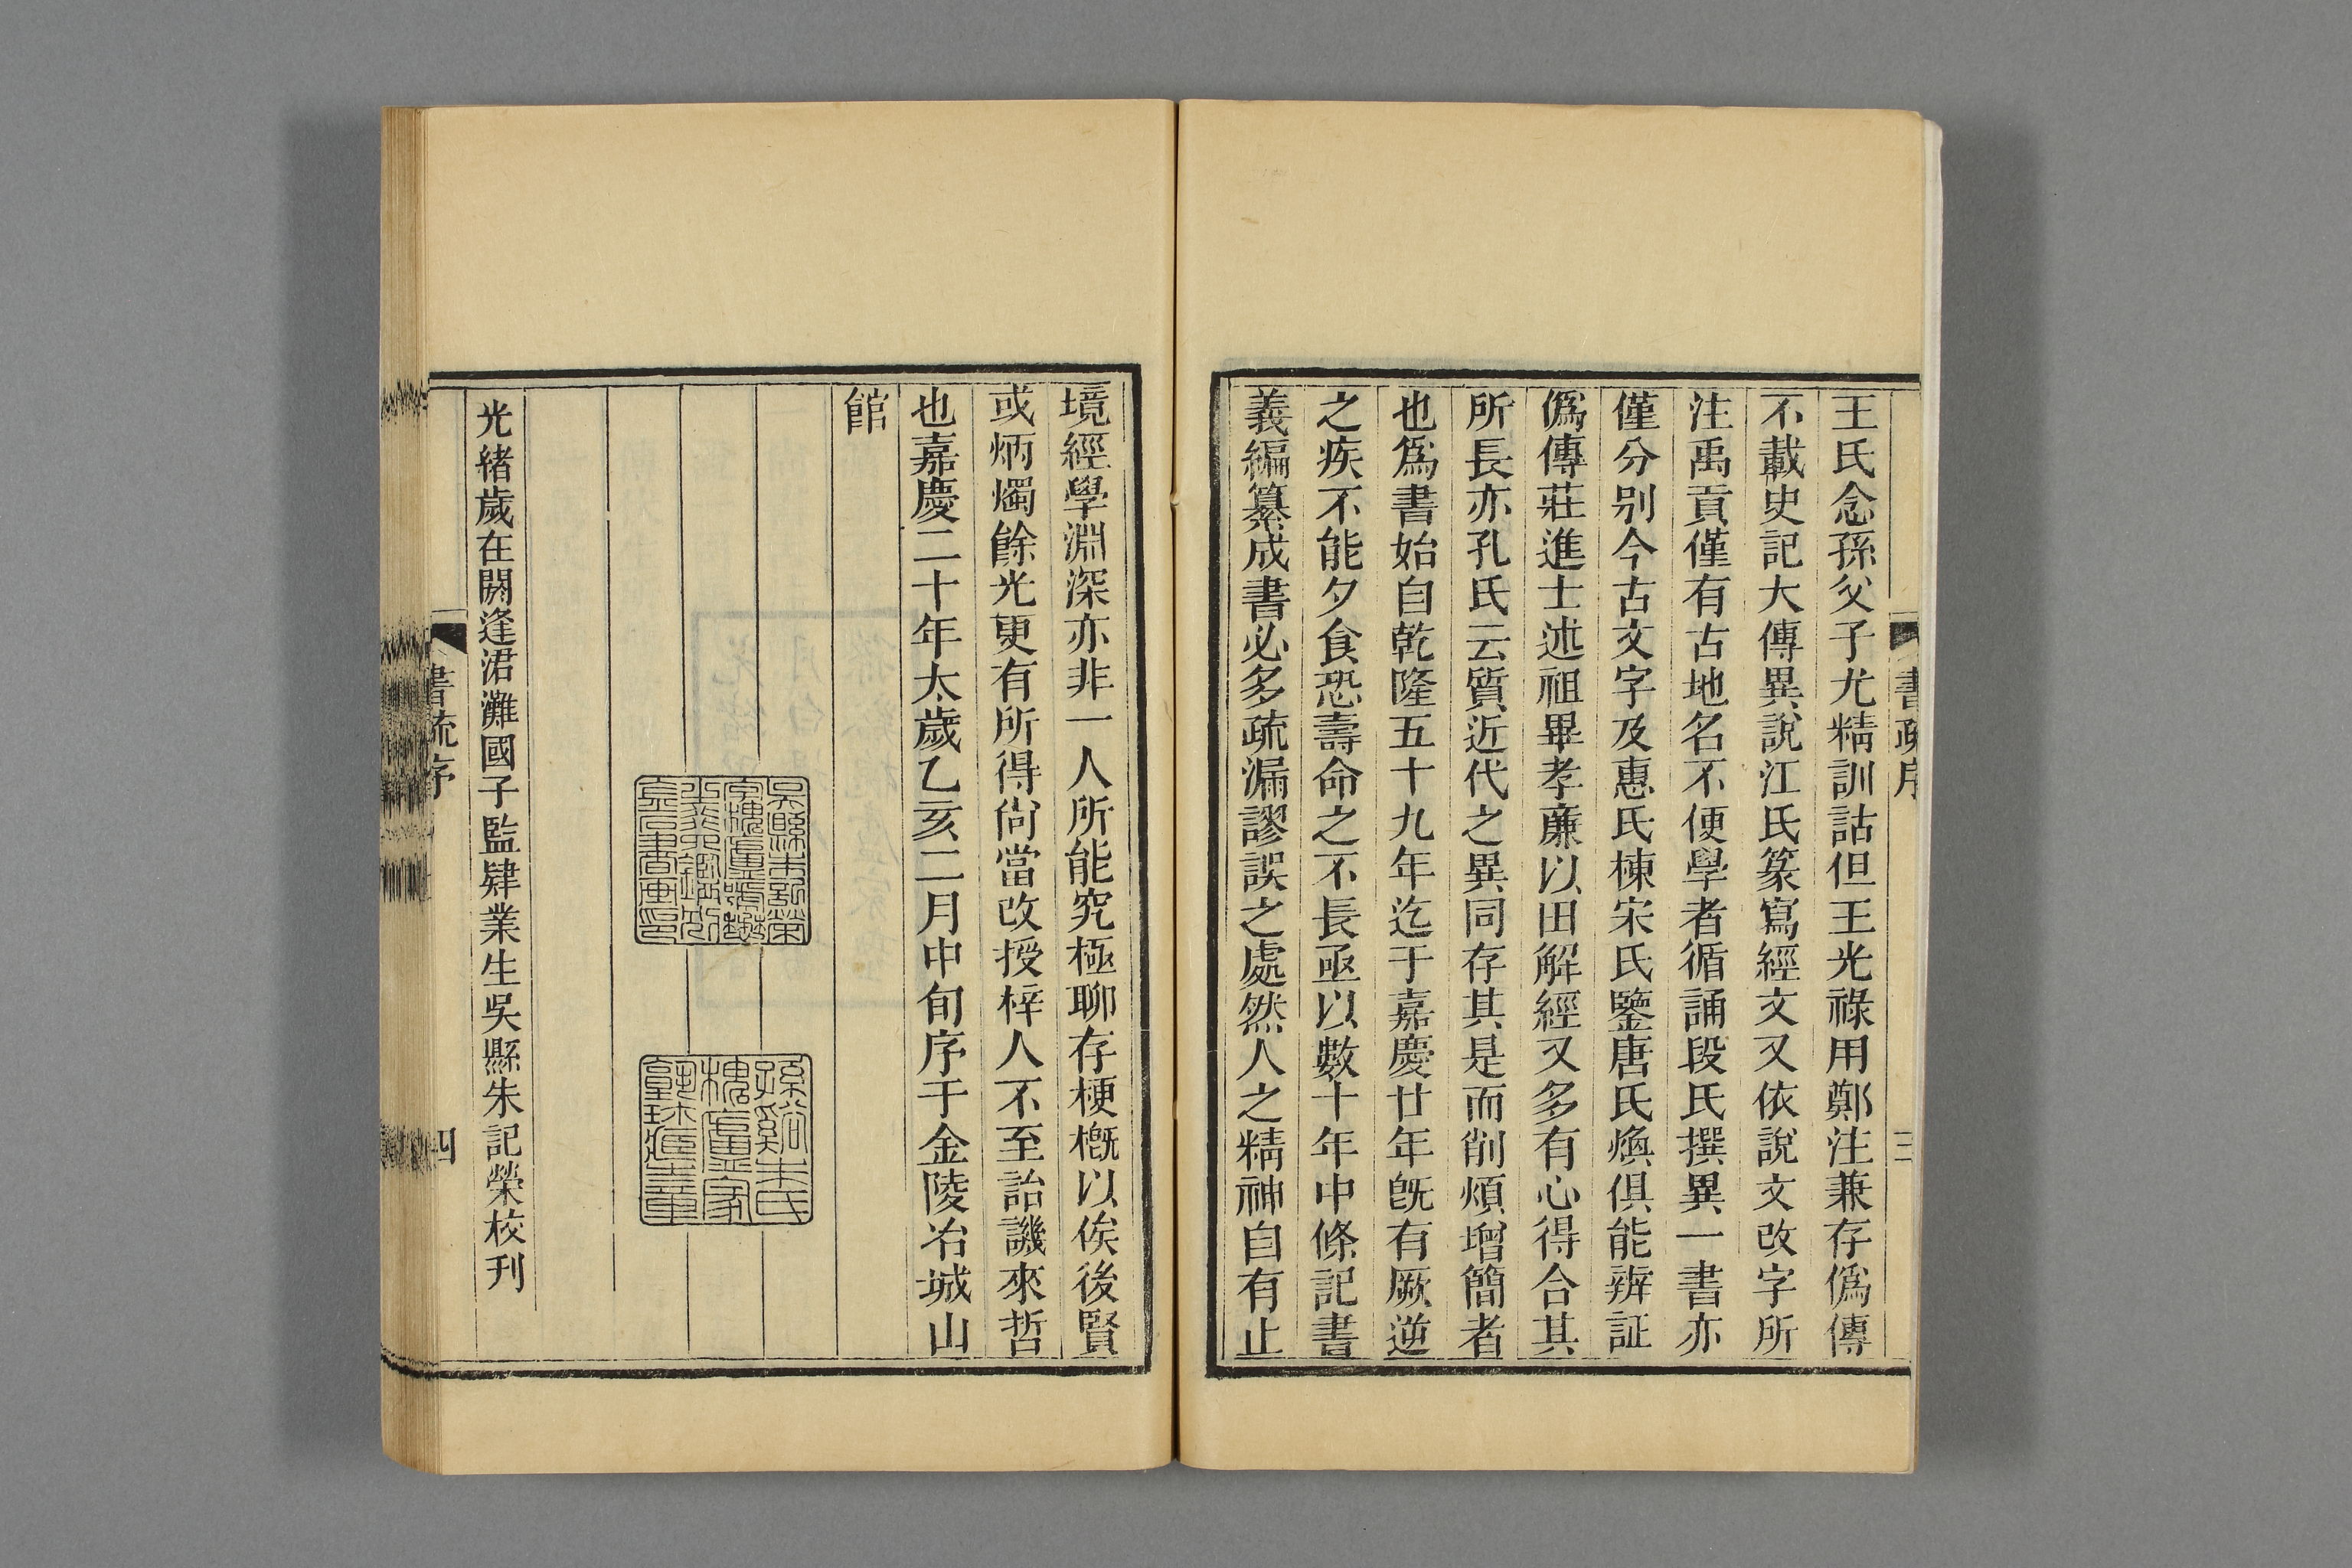 書疏序
三
王氏念孫父子尤精訓詁但王光祿用鄭注兼存僞傳
不載史記大傳異說江氏篆寫經文又依說文改字所
注禹貢僅有古地名不便學者循誦段氏撰異一書亦
僅分别今古文字及惠氏棟宋氏鑒唐氏煥俱能辨証
僞傳莊進士述祖畢孝廉以田解經又多有心得合其
所長亦孔氏云質近代之異同存其是而削煩增簡者
也爲書始自乾隆五十九年迄于嘉慶廿年旣有厥逆
之疾不能夕食恐壽命之不長亟以數十年中條記書
義編纂成書必多疏漏謬誤之處然人之精神自有止
境經學淵深亦非一人所能究極聊存梗槪以俟後賢
或炳燭餘光更有所得尙當改授梓人不至詒譏來哲
也嘉慶二十年太歲乙亥二月中旬序于金陵冶城山
館
吳縣朱記榮
字槐廬
孫谿朱氏
槐廬家
光緒歲在閼逢涒灘國子監肄業生吳縣朱記榮校刊
書疏序
四